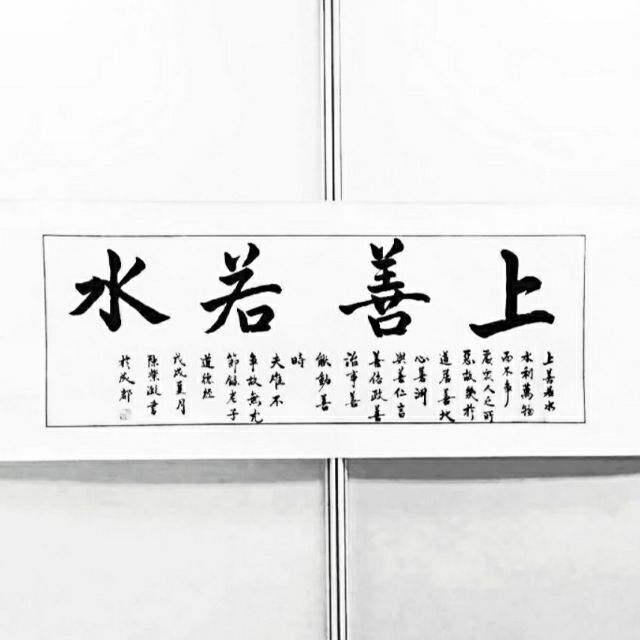 上善若水
上善若水
水利萬物
而不爭
處眾人之所
惡故幾於
道居善地
心善淵
與善仁言
善信政善
治事善
能動善
時
夫唯不
爭故無尤
節錄老子
道德經
戊戌夏月
陳崇澂書
於成都